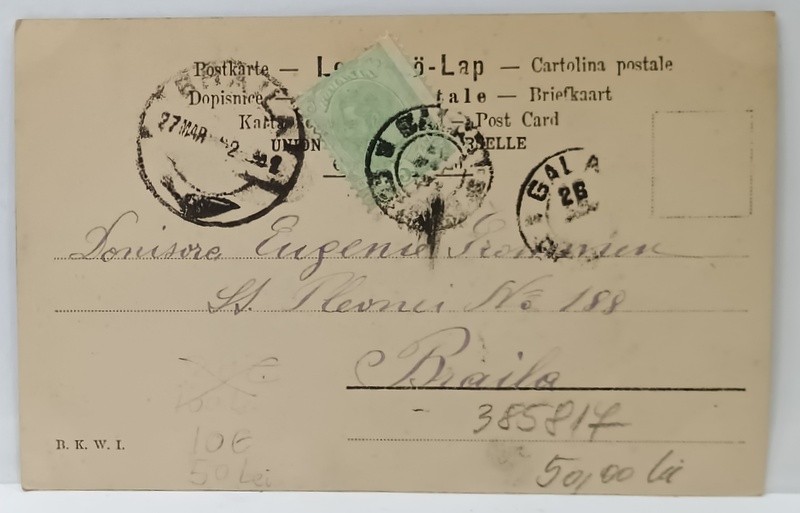 Postkarte — Le ö-Lap — Cartolina postale
Dopisnice tale — Briefkaart
Karta Post Card
UNION RSELLE
BRAILA
27 MAR
GALA
26
Domisore Eugenie
St. Plevnei No 188
Braila
385817
50,00 lei
B. K. W. I.
10€
50 Lei